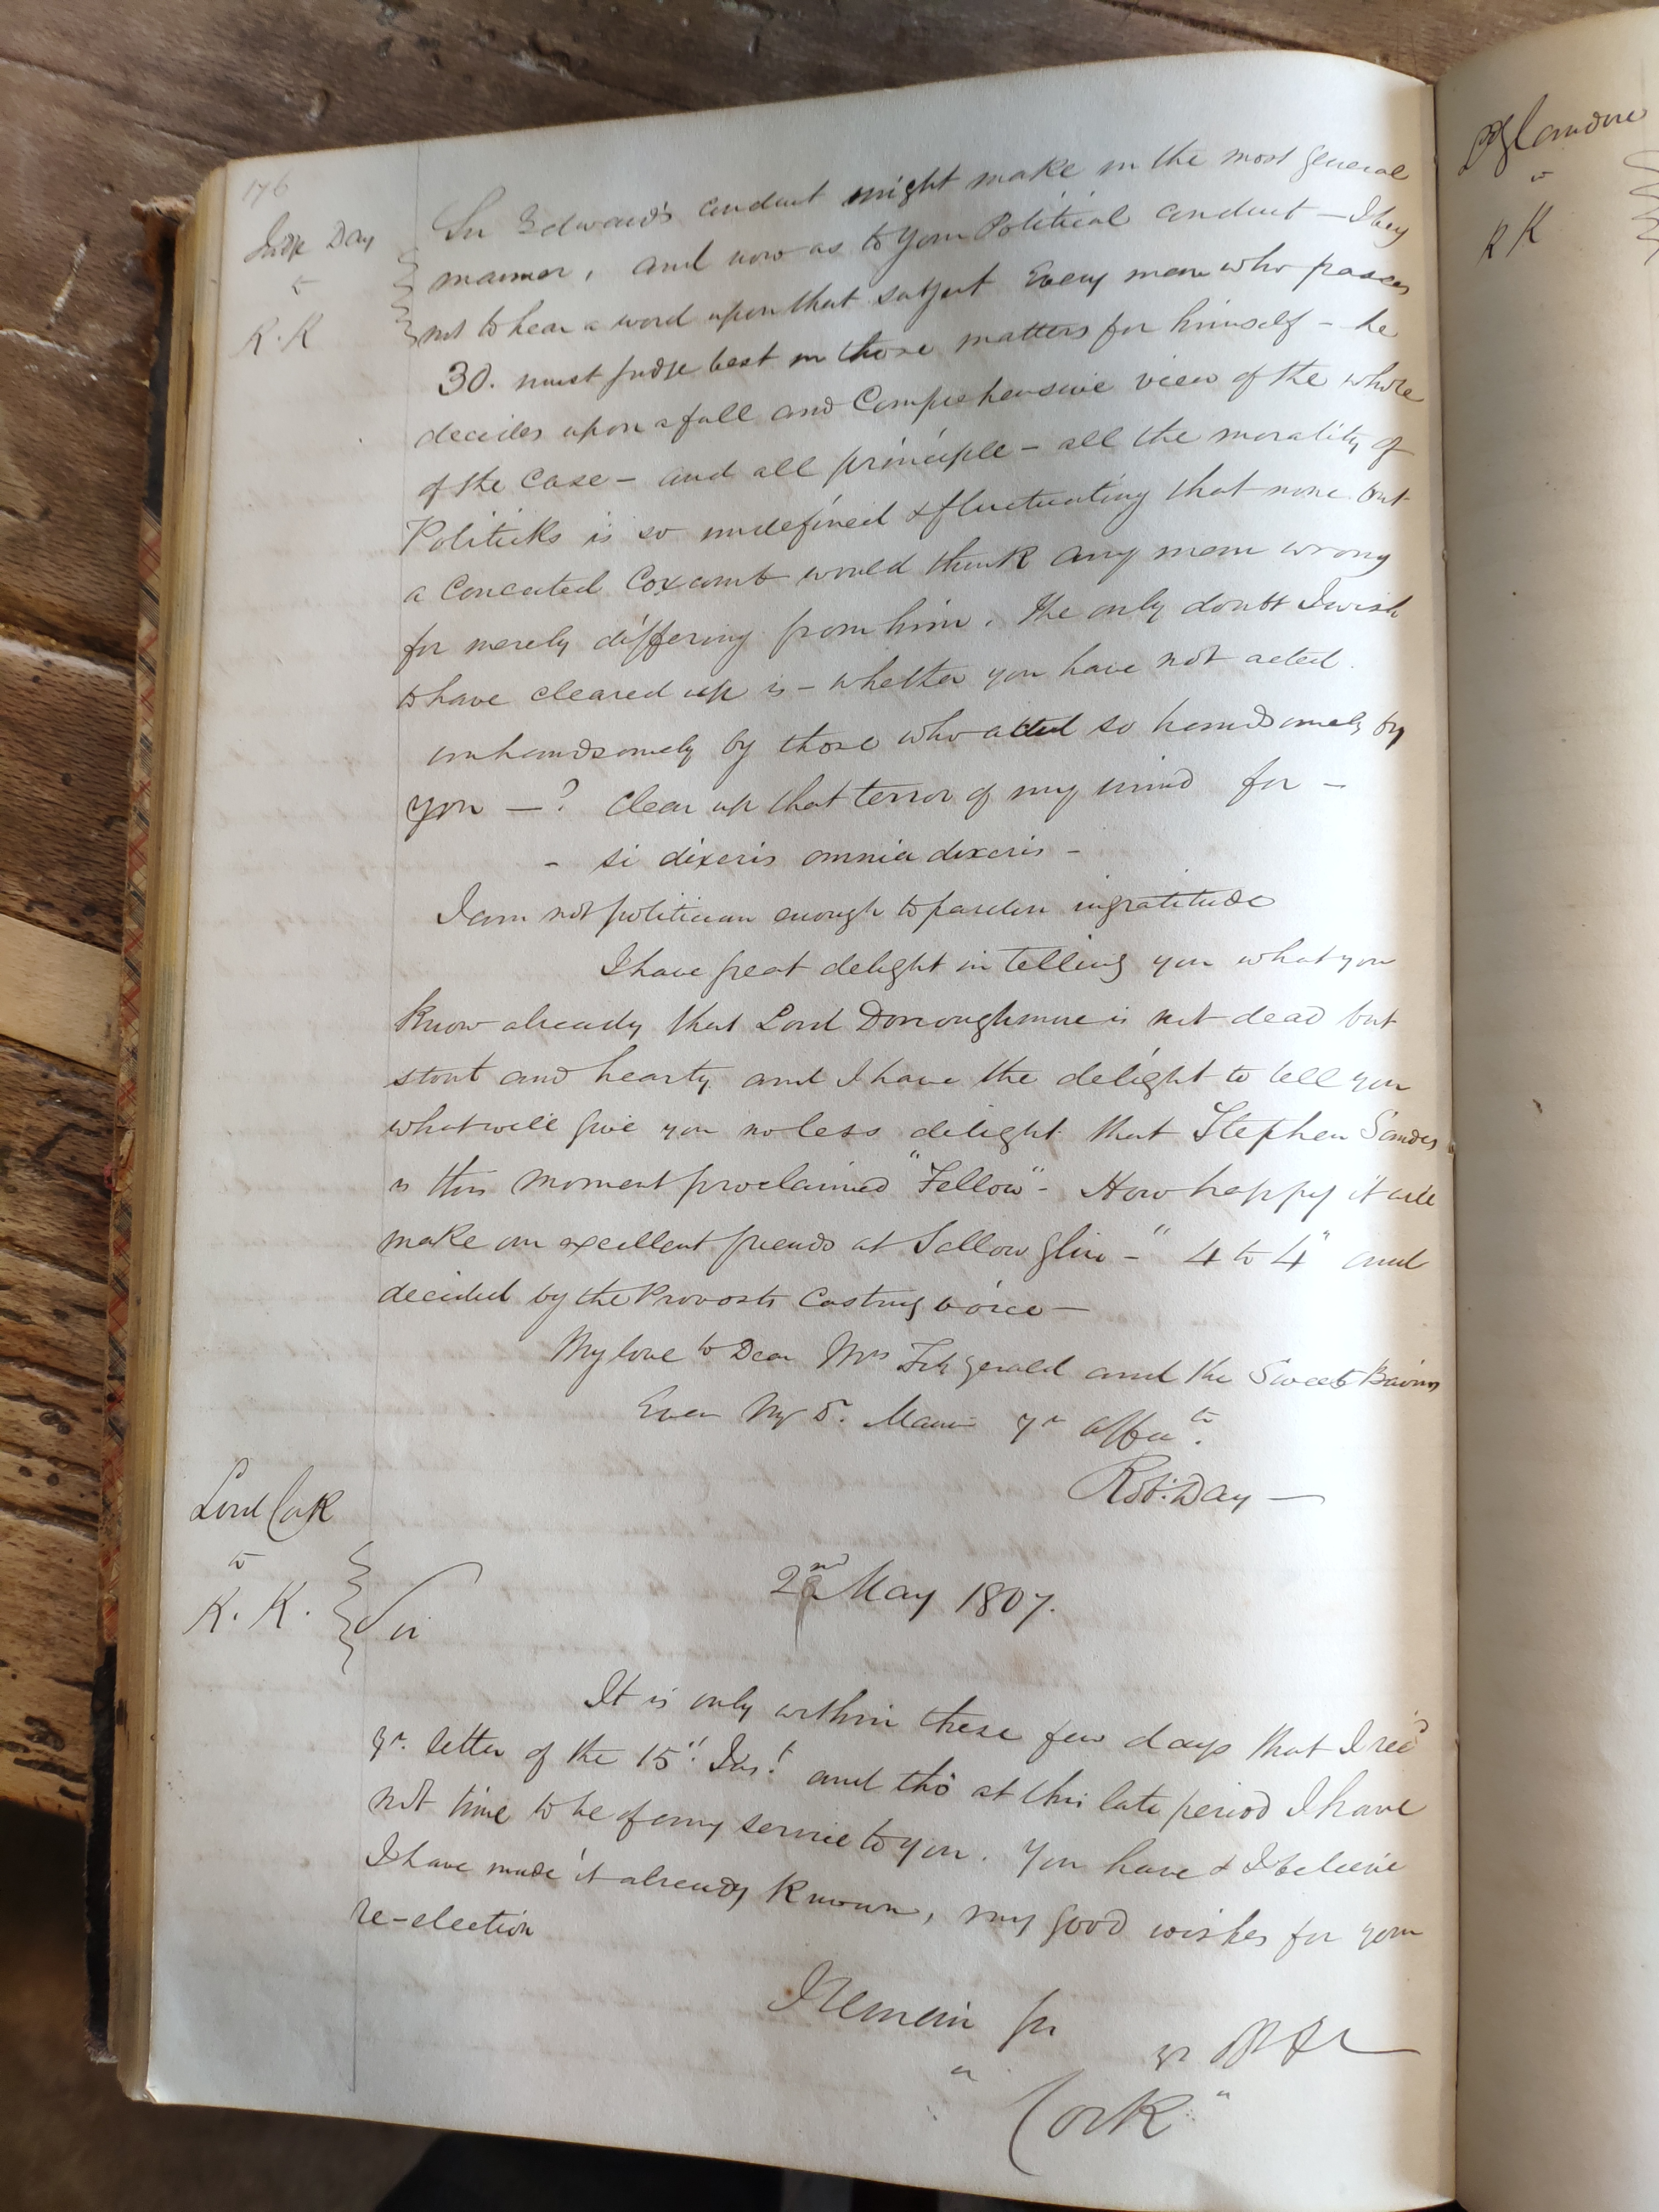 176
Judge Day
to
K.K
Sir Edward's conduct might make in the most general
manner, and now as to your Political conduct – I beg
not to hear a word upon that subject Every man who passes
30. must judge best in those matters for himself – he
decides upon a full and Comprehensive view of the whole
of the Case – and all principle – all the morality of
Politicks is so undefined & fluctuating that none but
a Conceited Coxcomb would think any man wrong
for merely differing from him. The only doubt I wish
to have cleared up is – whether you have not acted
unhandsomely by those who acted so handsomely by
you — ? Clear up that terror of my mind for –
– si dixeris omnia dixeris –
I am not politician enough to pardon ingratitude
I have great delight in telling you what you
know already that Lord Donoughmore is not dead but
stout and hearty and I have the delight to tell you
what will give you no less delight that Stephen Sandes
is this moment proclaimed "Fellow" – How happy it will
make our excellent friends at Sallow Glin – "4 to 4" and
decided by the Provosts Casting voice —
My love to Dear Mrs FitzGerald and the Sweet Bairns
Ever My Dr. Maurice yr affte.
Robt. Day —
Lord Cork
to
K. K.
2nd May 1807.
Sir
It is only within these few days that I recd
yr. letter of the 15" Inst. and tho at this late period I have
not time to be of any service to you. You have & I believe
I have made it already known, my good wishes for your
re-election
I remain Sir
yr
" Cork "
Glandore
to
K K